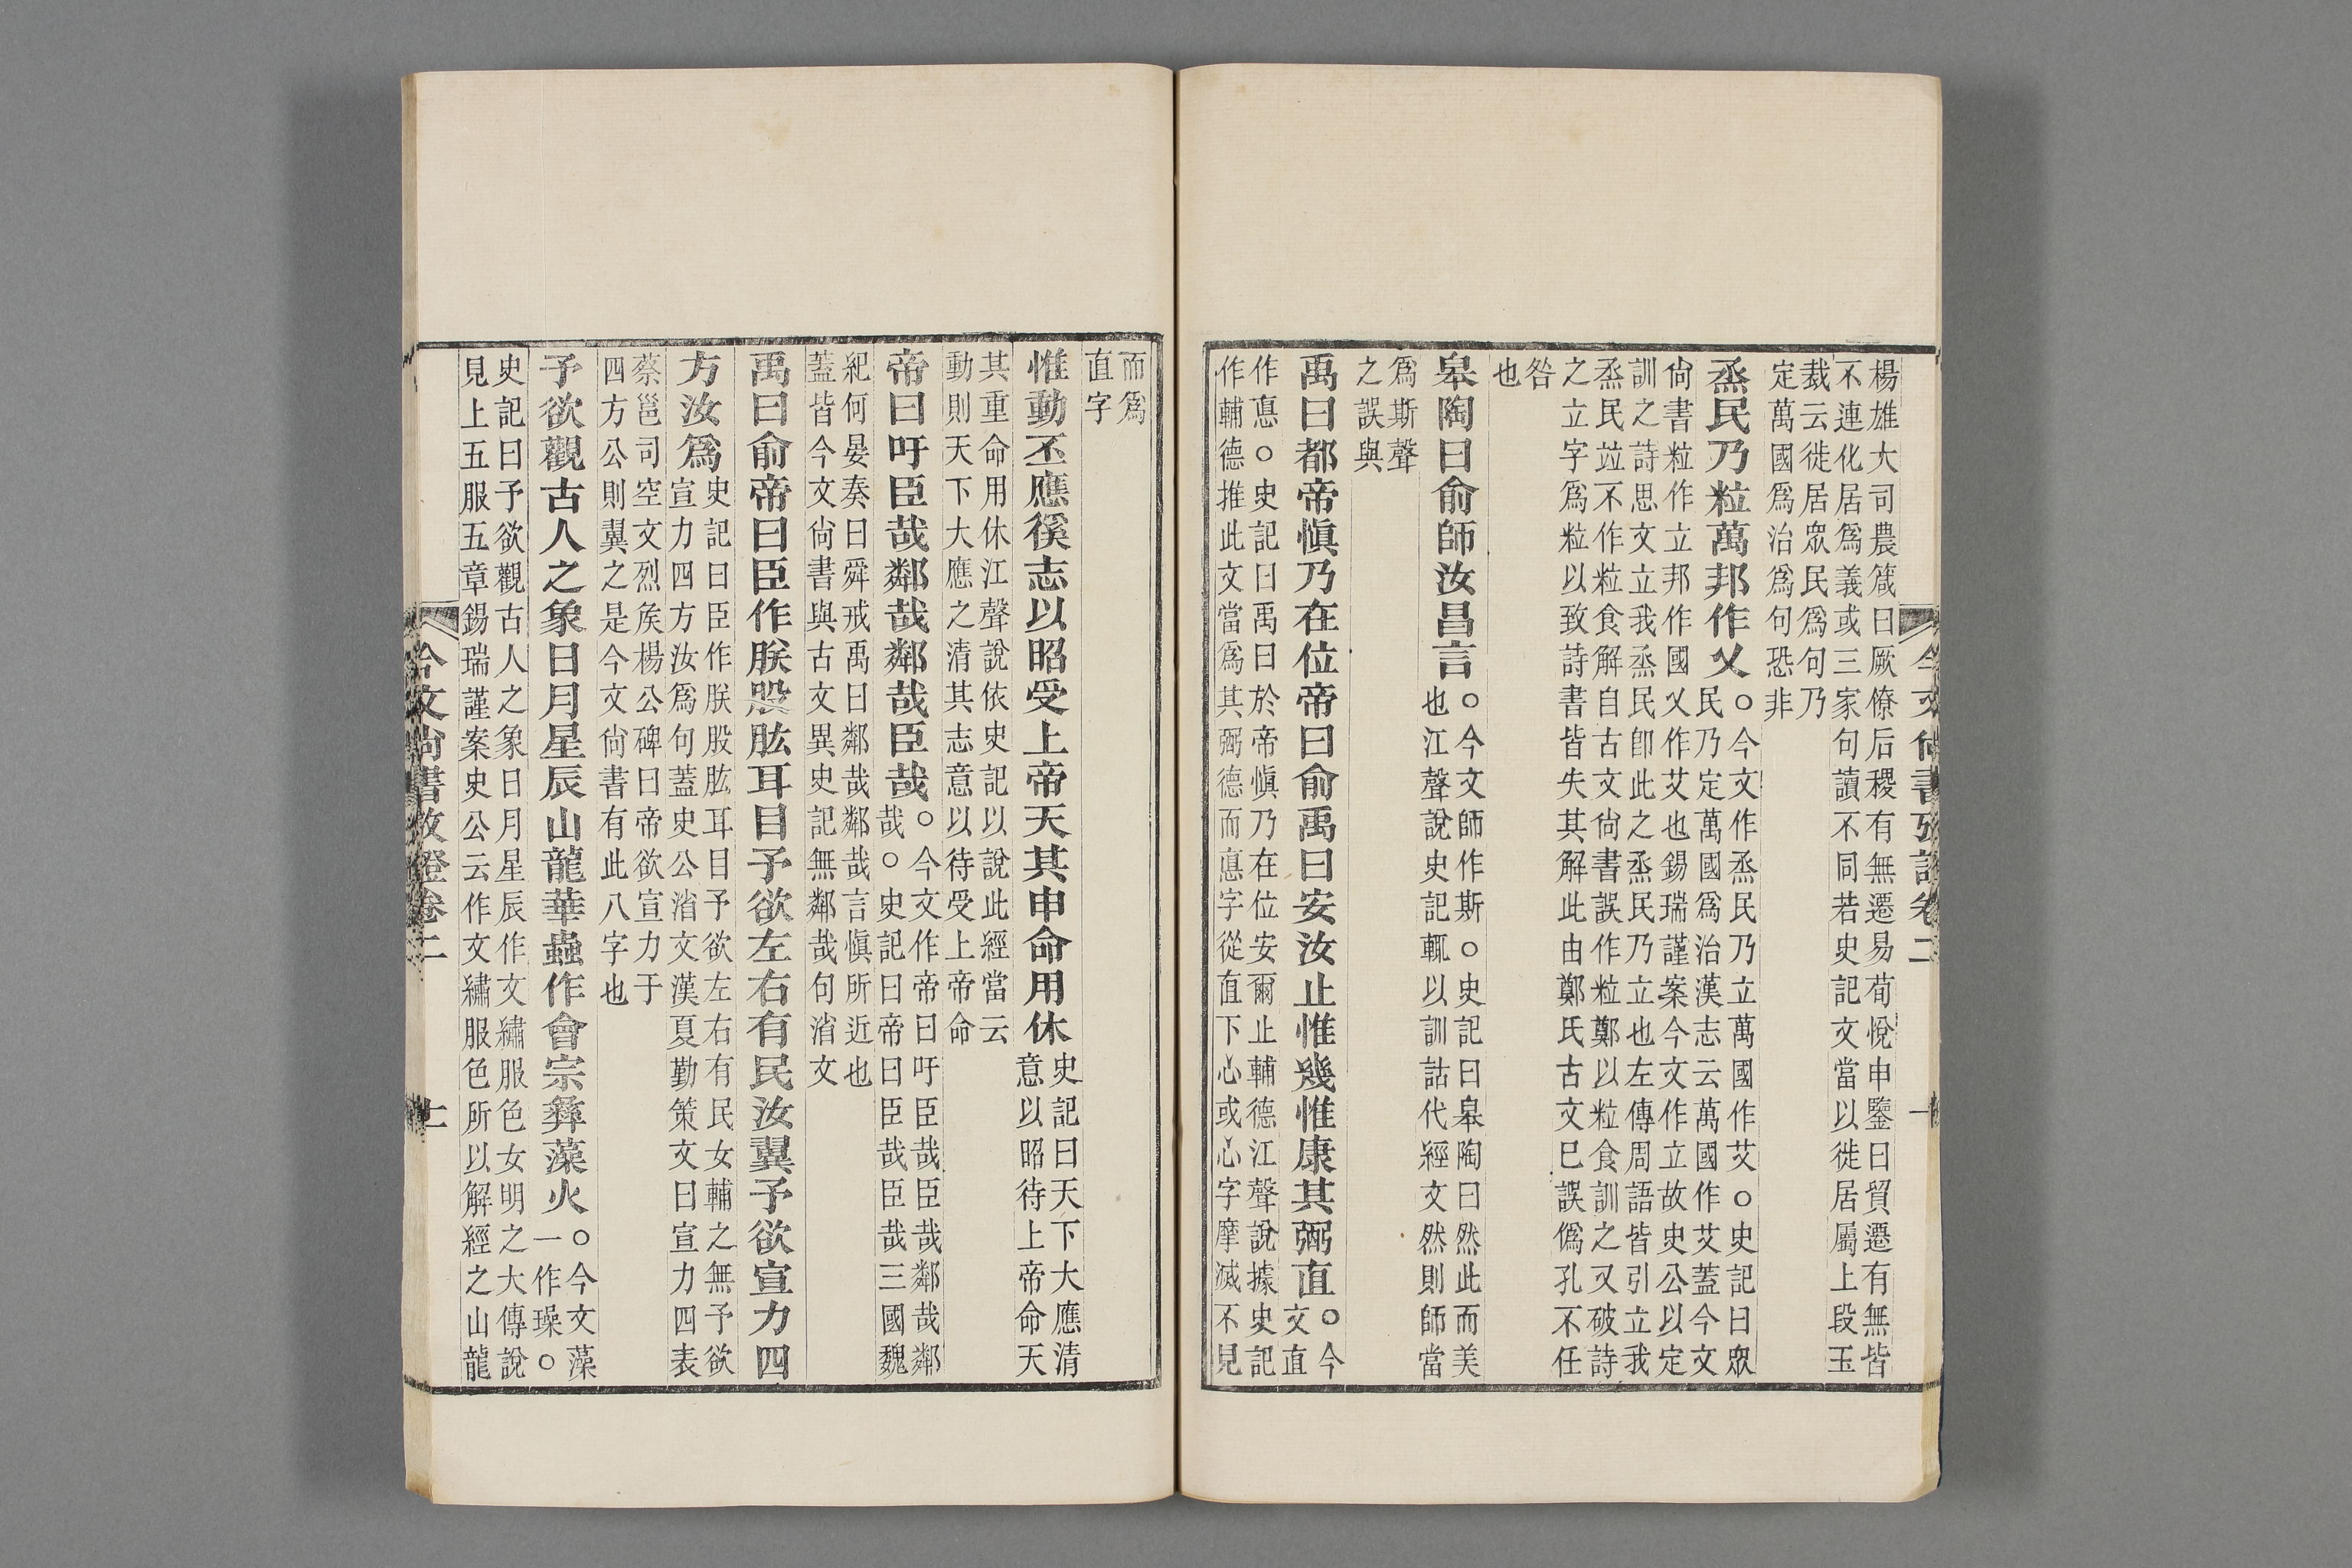 今文尙書攷證卷二
楊雄大司農箴曰厥僚后稷有無遷易荀悅申鑒曰貿遷有無皆
不連化居爲義或三家句讀不同若史記文當以徙居屬上段玉
裁云徙居眾民爲句乃
定萬國爲治爲句恐非
烝民乃粒萬邦作乂○今文作烝民乃立萬國作艾○史記曰眾
民乃定萬國爲治漢志云萬國作艾蓋今文
尙書粒作立邦作國乂作艾也錫瑞謹案今文作立故史公以定
訓之詩思文立我烝民卽此之烝民乃立也左傳周語皆引立我
烝民竝不作粒食解自古文尙書誤作粒鄭以粒食訓之又破詩
之立字爲粒以致詩書皆失其解此由鄭氏古文已誤僞孔不任
咎
也
皋陶曰俞師汝昌言○今文師作斯○史記曰皋陶曰然此而美
也江聲說史記輒以訓詁代經文然則師當
爲斯聲
之誤與
禹曰都帝愼乃在位帝曰俞禹曰安汝止惟幾惟康其弼直○今
文直
作悳○史記曰禹曰於帝愼乃在位安爾止輔德江聲說據史記
作輔德推此文當爲其弼德而悳字從直下心或心字摩滅不見
而爲
直字
惟動丕應徯志以昭受上帝天其申命用休史記曰天下大應清
意以昭待上帝命天
其重命用休江聲說依史記以說此經當云
動則天下大應之清其志意以待受上帝命
帝曰吁臣哉鄰哉鄰哉臣哉○今文作帝曰吁臣哉臣哉鄰哉鄰
哉○史記曰帝曰臣哉臣哉三國魏
紀何晏奏曰舜戒禹曰鄰哉鄰哉言愼所近也
蓋皆今文尙書與古文異史記無鄰哉句渻文
禹曰俞帝曰臣作朕股肱耳目予欲左右有民汝翼予欲宣力四
方汝爲史記曰臣作朕股肱耳目予欲左右有民女輔之無予欲
宣力四方汝爲句蓋史公渻文漢夏勤策文曰宣力四表
蔡邕司空文烈矦楊公碑曰帝欲宣力于
四方公則翼之是今文尙書有此八字也
予欲觀古人之象日月星辰山龍華蟲作會宗彝藻火○今文藻
一作璪○
史記曰予欲觀古人之象日月星辰作文繡服色女明之大傳說
見上五服五章錫瑞謹案史公云作文繡服色所以解經之山龍
今文尙書攷證卷二
十一